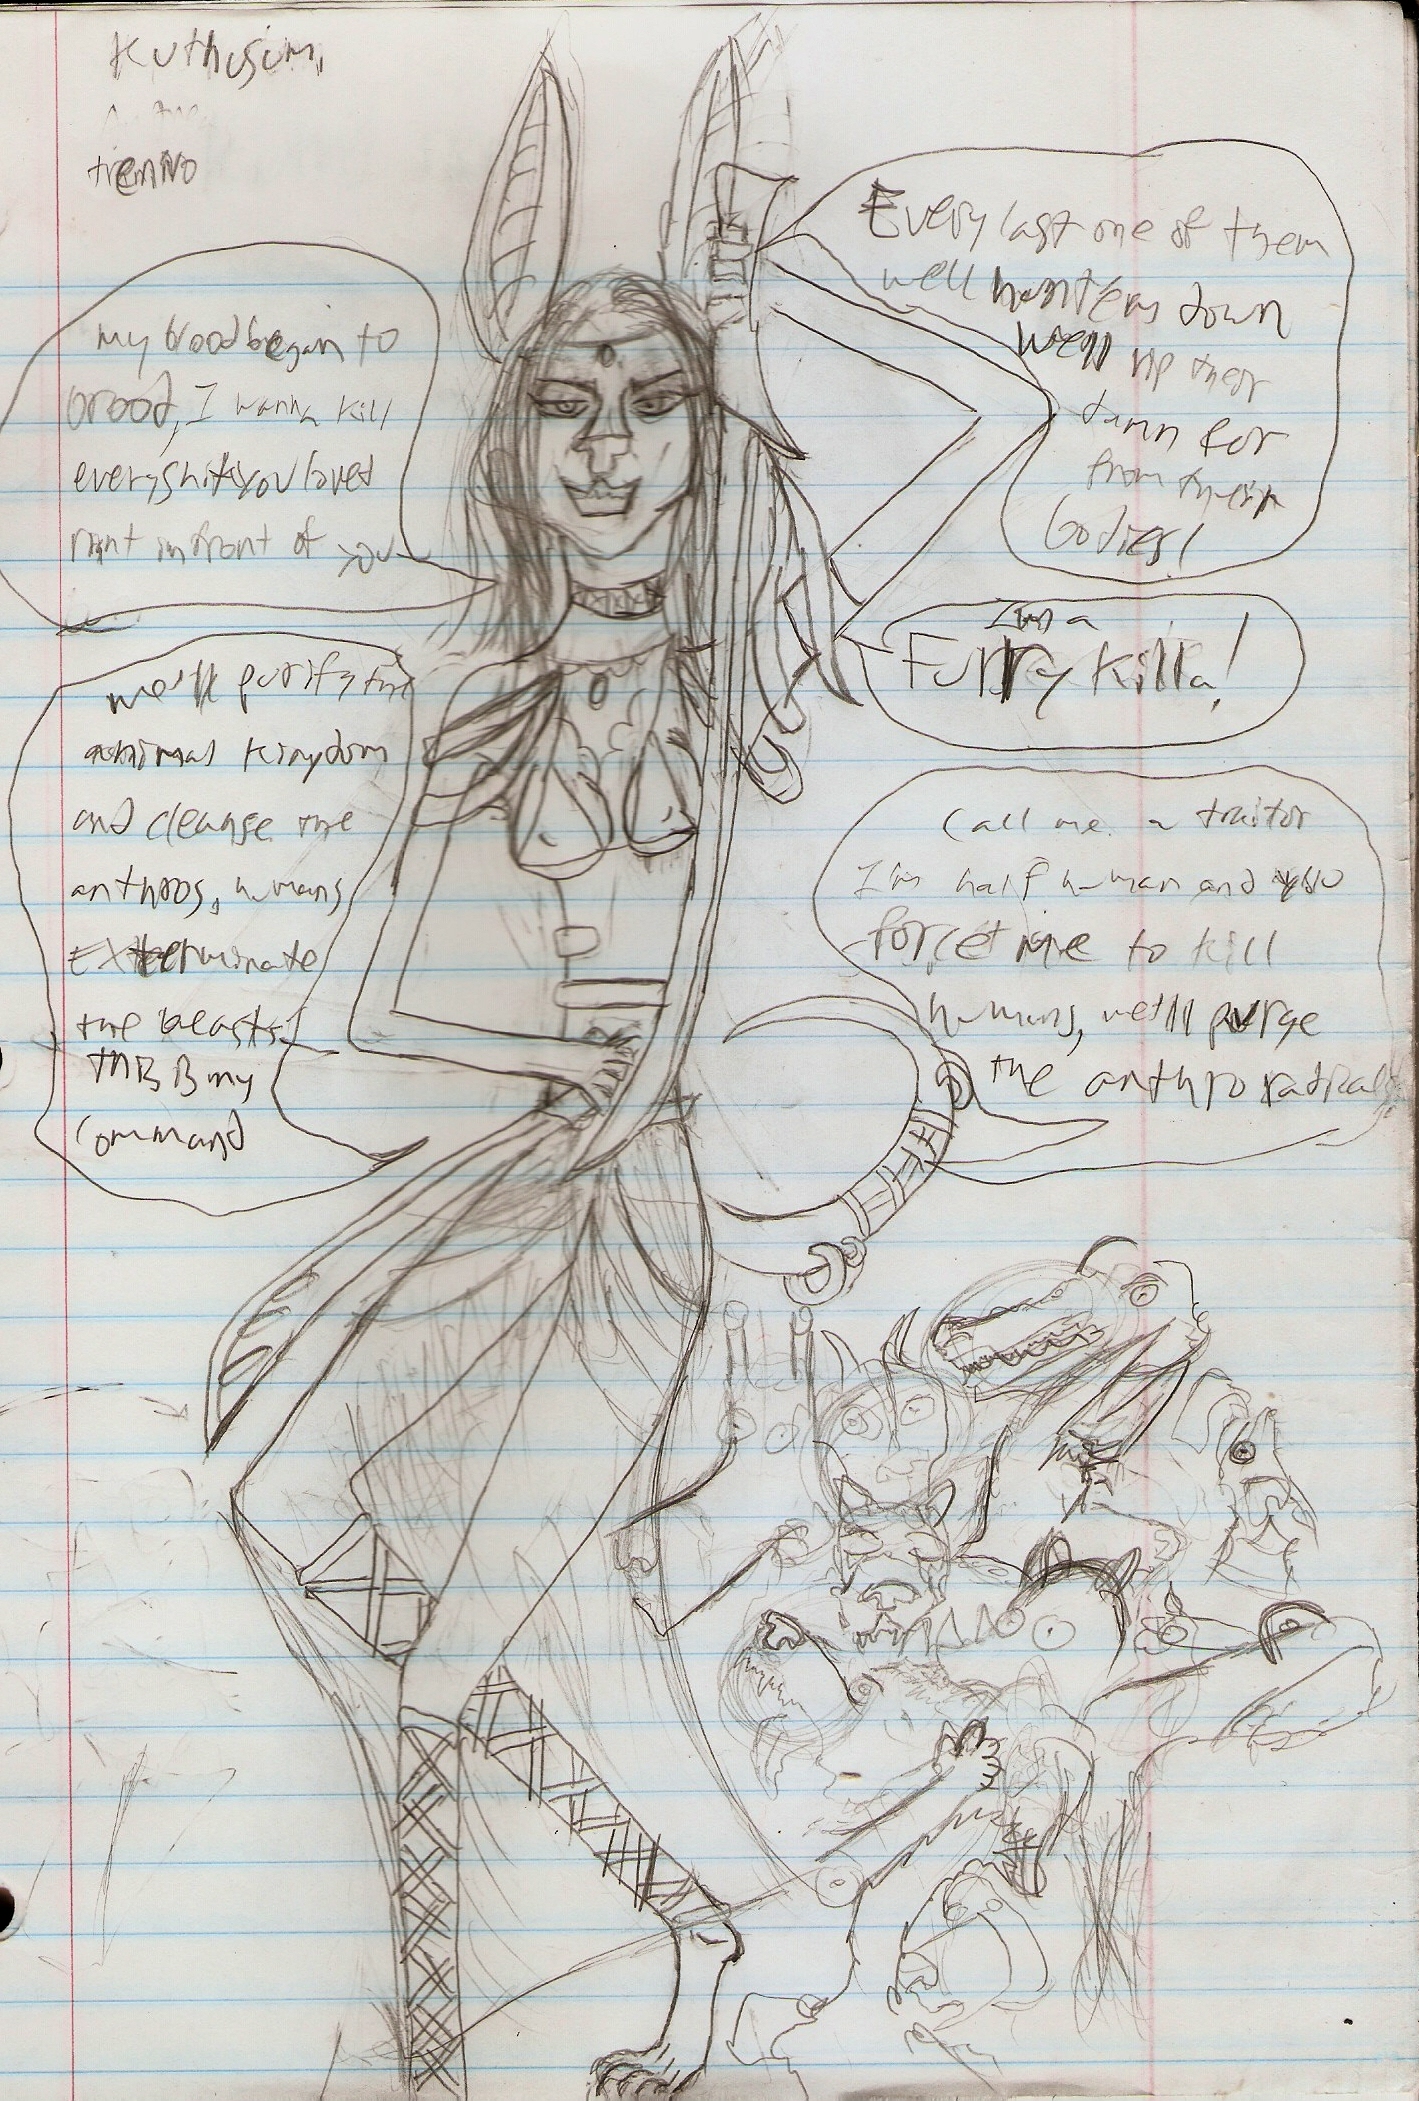 Kuthusum,
tremno
my blood began to
brood, I wanna kill
everyshityou loved
right in front of you
Every last one of them
well hunt em down
well rip their
damn for
from their
bodies!
I'm a
Furry killa!
we'll purify the
animal kingdom
and cleanse the
anthros, humans
Exterminate
the beasts!
this is my
command
Call me a traitor
I'm half human and
forcet me to kill
humans, we'll purge
the anthro radicals